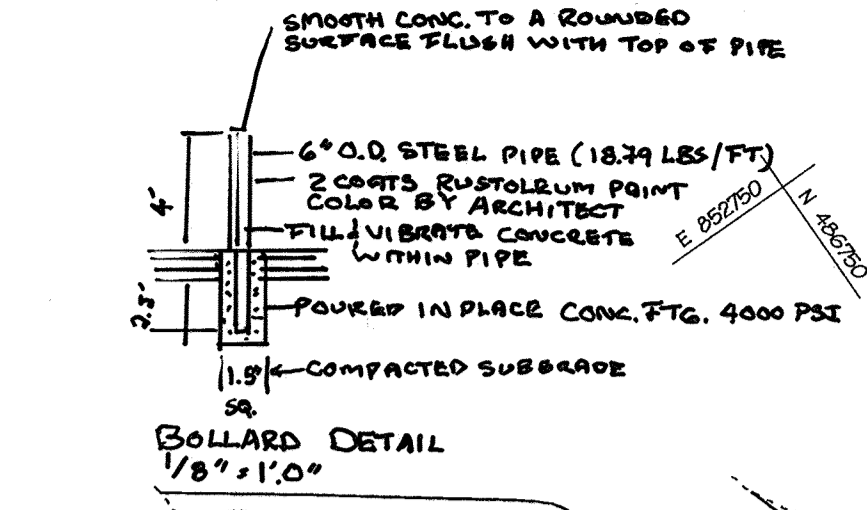 SMOOTH CONC. TO A ROUNDED
SURFACE FLUSH WITH TOP OF PIPE
6" O.D. STEEL PIPE (18.79 LBS/FT)
2 COATS RUSTOLEUM PAINT
COLOR BY ARCHITECT
FILL & VIBRATE CONCRETE
WITHIN PIPE
4'
E 852750
N 486750
POURED IN PLACE CONC. FTG. 4000 PSI
COMPACTED SUBGRADE
1.5'
SQ.
BOLLARD DETAIL
1/8" = 1'.0"